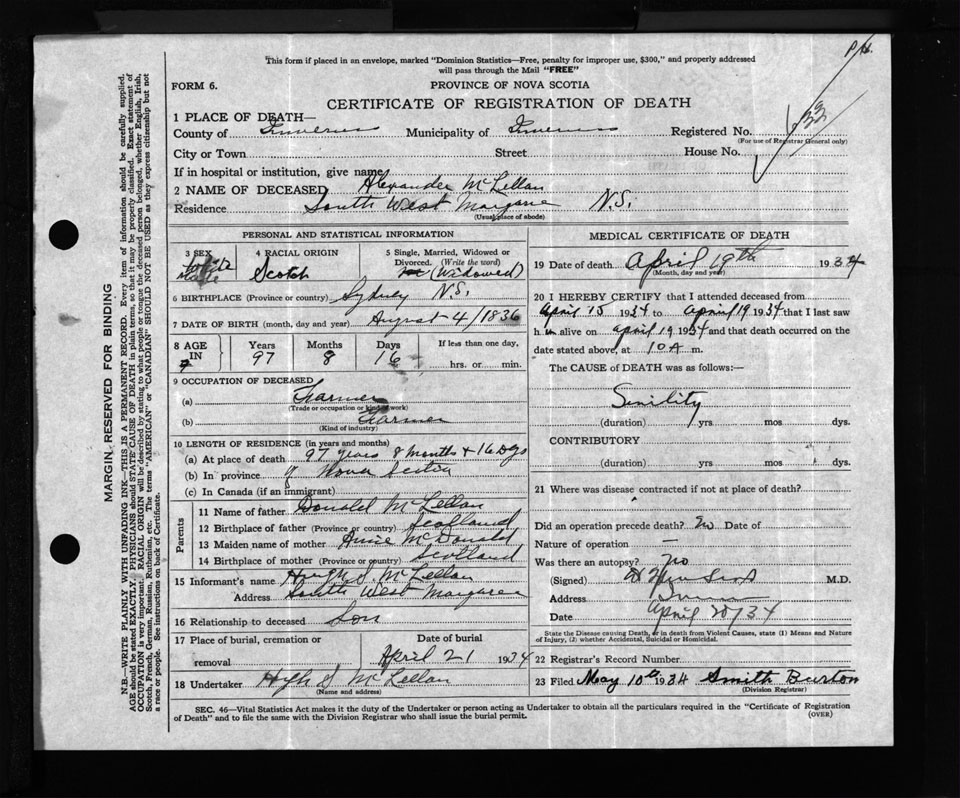 This form if placed in an envelope, marked "Dominion Statistics—Free, penalty for improper use, $300," and properly addressed
will pass through the Mail "FREE"
FORM 6.
PROVINCE OF NOVA SCOTIA
CERTIFICATE OF REGISTRATION OF DEATH
1 PLACE OF DEATH—
County of Inverness Municipality of Inverness Registered No.
(For use of Registrar General only)
City or Town Street House No.
If in hospital or institution, give name
2 NAME OF DECEASED Alexander McLellan
Residence South West Margaree N.S.
(Usual place of abode)
PERSONAL AND STATISTICAL INFORMATION
3 SEX Male White
4 RACIAL ORIGIN Scotch
5 Single, Married, Widowed or Divorced. (Write the word) (Widowed)
6 BIRTHPLACE (Province or country) Sydney N.S.
7 DATE OF BIRTH (month, day and year) August 4/1836
8 AGE IN Years 97 Months 8 Days 16 If less than one day, hrs. or min.
9 OCCUPATION OF DECEASED
(a) Farmer
(Trade or occupation or kind of work)
(b) Farmer
(Kind of industry)
10 LENGTH OF RESIDENCE (in years and months)
(a) At place of death 97 years 8 months + 16 Dys
(b) In province of Nova Scotia
(c) In Canada (if an immigrant)
Parents
11 Name of father Donald McLellan
12 Birthplace of father (Province or country) Scotland
13 Maiden name of mother Annie McDonald
14 Birthplace of mother (Province or country) Scotland
15 Informant's name Hugh S. McLellan
Address South West Margaree
16 Relationship to deceased Son
17 Place of burial, cremation or removal
Date of burial
April 21 1934
18 Undertaker Hugh S McLellan
(Name and address)
MEDICAL CERTIFICATE OF DEATH
19 Date of death April 19th 1934
(Month, day and year)
20 I HEREBY CERTIFY that I attended deceased from
April 15 1934 to April 19 1934 that I last saw
h im alive on April 19 1934 and that death occurred on the
date stated above, at 10 A m.
The CAUSE of DEATH was as follows:—
Senility
(duration) yrs mos. dys.
CONTRIBUTORY
(duration) yrs. mos. dys.
21 Where was disease contracted if not at place of death?
Did an operation precede death? No Date of
Nature of operation —
Was there an autopsy? No
(Signed) M.D.
Address
Date April 20/34
State the Disease causing Death, or in death from Violent Causes, state (1) Means and Nature
of Injury, (2) whether Accidental, Suicidal or Homicidal.
22 Registrar's Record Number
23 Filed May 10th 1934 Smith Burton
(Division Registrar)
SEC. 46—Vital Statistics Act makes it the duty of the Undertaker or person acting as Undertaker to obtain all the particulars required in the "Certificate of Registration
of Death" and to file the same with the Division Registrar who shall issue the burial permit.
(OVER)
MARGIN RESERVED FOR BINDING
N.B.—WRITE PLAINLY WITH UNFADING INK—THIS IS A PERMANENT RECORD. Every item of information should be carefully supplied.
AGE should be stated EXACTLY. PHYSICIANS should STATE CAUSE OF DEATH in plain terms, so that it may be properly classified. Exact statement of
OCCUPATION is very important. RACIAL ORIGIN will be described by stating to what people or tongue the deceased person belonged, whether English, Irish,
Scotch, French, German, Russian, Ruthenian, etc. The terms "AMERICAN" or "CANADIAN" SHOULD NOT BE USED as they express citizenship but not
a race or people. See instructions on back of Certificate.